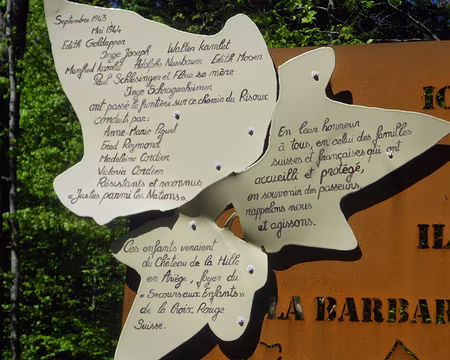 Septembre 1943
Mai 1944
Edith Goldapper Walter Kamlet
Inge Joseph
Manfred Kamlet Adolphe Nussbaum Edith Moser
Paul Schlesinger et Flora sa mère
Inge Schragenheimer
ont passé la frontière sur ce chemin du Risoux
conduits par:
Anne-Marie Piguet
Fred Reymond
Madeleine Cordier
Victoria Cordier
Résistants et reconnus
«Justes parmi les Nations»
En leur honneur
à tous, en celui des familles
suisses et françaises qui ont
accueilli et protégé,
en souvenir des passeurs,
rappelons nous
et agissons.
Ces enfants venaient
du Château de la Hille
en Ariège, foyer du
«Secours aux Enfants»
de la Croix Rouge
Suisse.
LA BARBAR